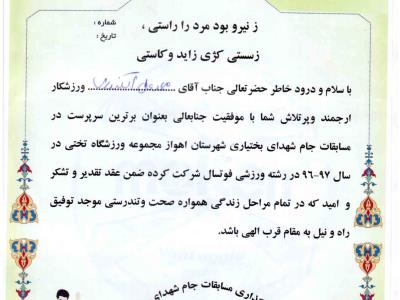 ز نیرو بود مرد را راستی ،
شماره :
تاریخ :
زسستی کژی زاید وکاستی
با سلام و درود خاطر حضرتعالی جناب آقای ورزشکار
ارجمند وپرتلاش شما با موفقیت جنابعالی بعنوان برترین سرپرست در
مسابقات جام شهدای بختیاری شهرستان اهواز مجموعه ورزشگاه تختی در
سال ۹۷-۹۶ در رشته ورزشی فوتسال شرکت کرده ضمن عقد تقدیر و تشکر
و امید که در تمام مراحل زندگی همواره صحت وتندرستی موجد توفیق
راه و نیل به مقام قرب الهی باشد.
مسابقات جام شهدای